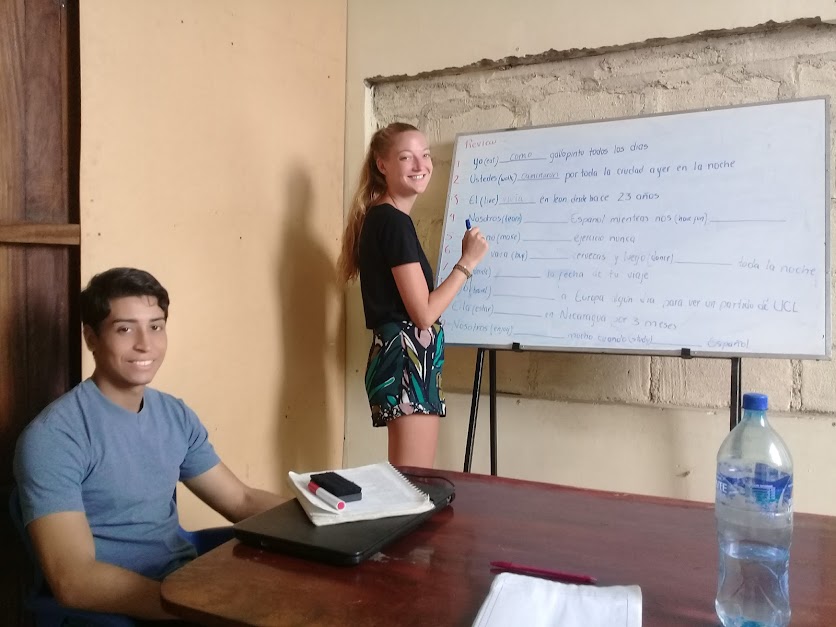 Review:
1. Yo (eat) como gallopinto todos los dias
2. Ustedes (walk) caminaron por toda la ciudad ayer en la noche
3. El (live) en leon desde hace 23 años
4. Nosotros (learn) Español mientras nos (have fun)
5. no (make) ejercicio nunca
6. (buy) cervezas y luego (dance) toda la noche
la fecha de tu viaje
(travel) a Europa algun dia para ver un partido de UCL
Ella (estar) en Nicaragua por 3 meses
Nosotros (enjoy) mucho cuando (study) Español